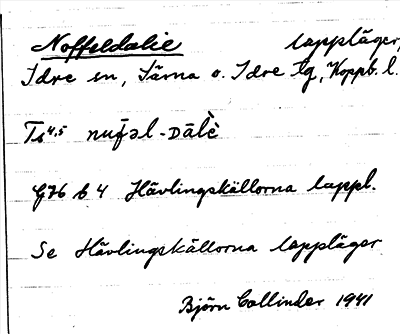 Noffeldalie lappläger,
Idre sn, Särna o. Idre tg, Koppb. l.
Ts 4,5 nuf̄əl-Dālè
G76 b 4 Hävlingskällorna lappl.
Se Hävlingskällorna lappläger
Björn Collinder 1941